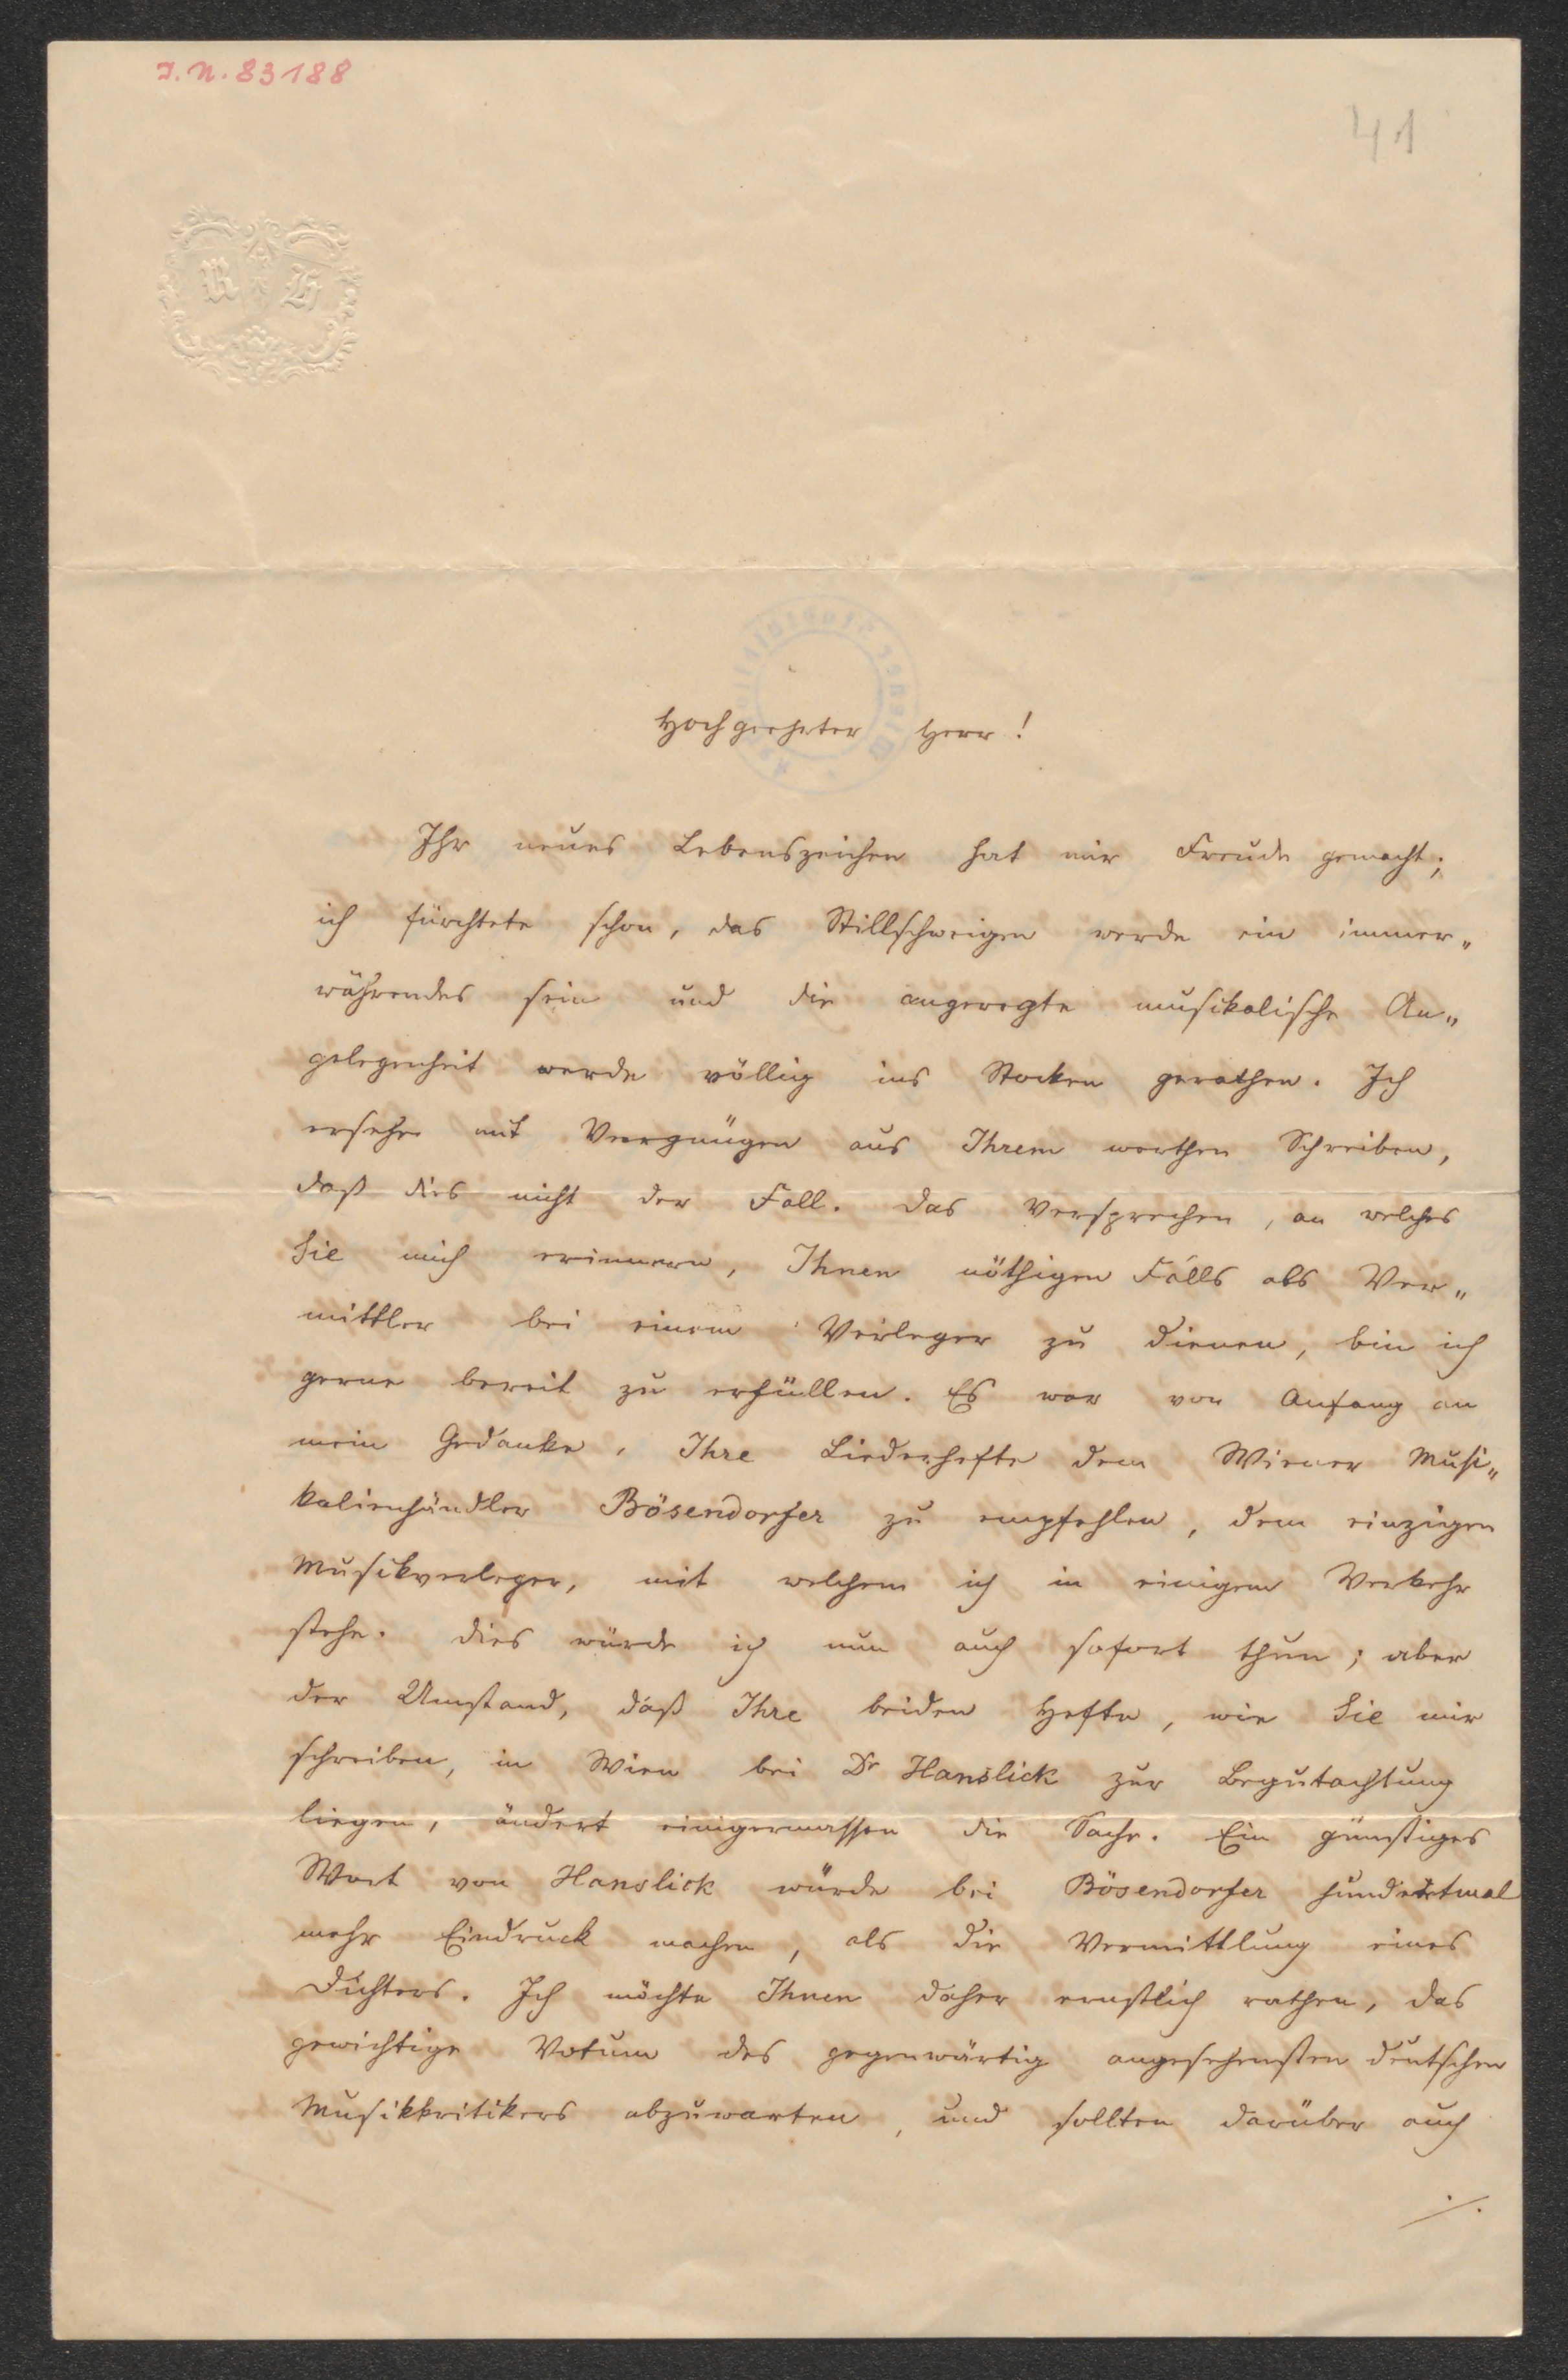 I.N. 83188
41
R H
Hochgeehrter Herr!
Ihr neues Lebenszeichen hat mir Freude gemacht;
ich fürchtete schon, das Stillschweigen werde ein immer„
währendes sein und die angeregte musikalische An„
gelegenheit werde völlig ins Stocken gerathen. Ich
ersehe mit Vergnügen aus Ihrem werthen Schreiben,
daß dies nicht der Fall. Das Versprechen, an welches
Sie mich erinnern, Ihnen nöthigen Falls als Ver„
mittler bei einem Verleger zu dienen, bin ich
gerne bereit zu erfüllen. Es war von Anfang an
mein Gedanke, Ihre Liederhefte dem Wiener Musi„
kalienhändler Bösendorfer zu empfehlen, dem einzigen
Musikverleger, mit welchem ich in einigem Verkehr
stehe. Dies würde ich nun auch sofort thun; aber
der Umstand, daß Ihre beiden Hefte, wie Sie mir
schreiben, in Wien bei Dr Hanslick zur Begutachtung
liegen, ändert einigermassen die Sache. Ein günstiges
Wort von Hanslick würde bei Bösendorfer hundertmal
mehr Eindruck machen, als die Vermittlung eines
Dichters. Ich möchte Ihnen daher ernstlich rathen, das
gewichtige Votum des gegenwärtig angesehensten deutschen
Musikkritikers abzuwarten, und sollten darüber auch
./.